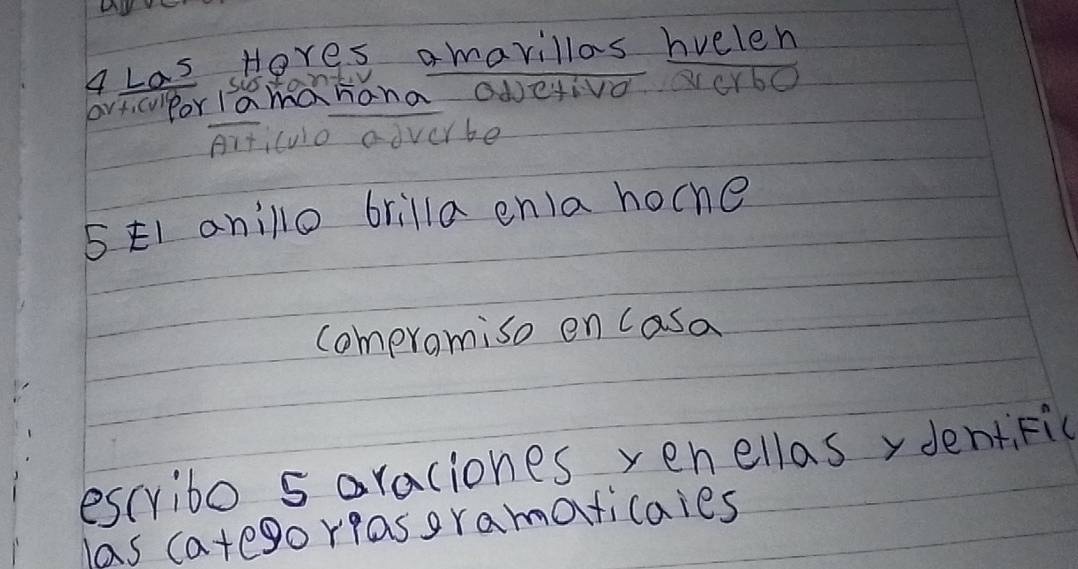 4 Las Hores amarillas huelen
articulo sustantiv adjetivo verbo
Por la mañana
Articulo adverbo
5 El anillo brilla enla hocne
compramiso en casa
escribo 5 araciones y en ellas ydentific
las categorias gramaticales